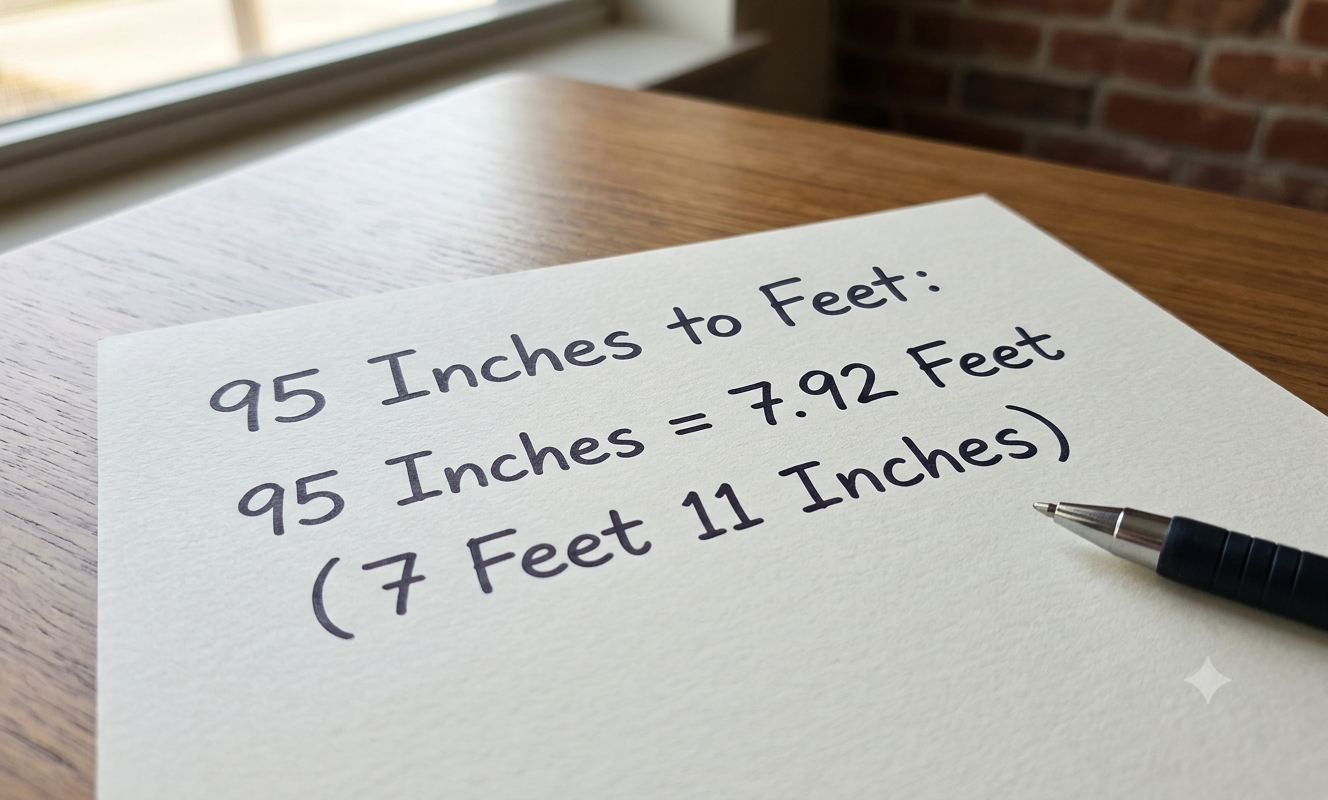 95 Inches to Feet:
95 Inches = 7.92 Feet
(7 Feet 11 Inches)